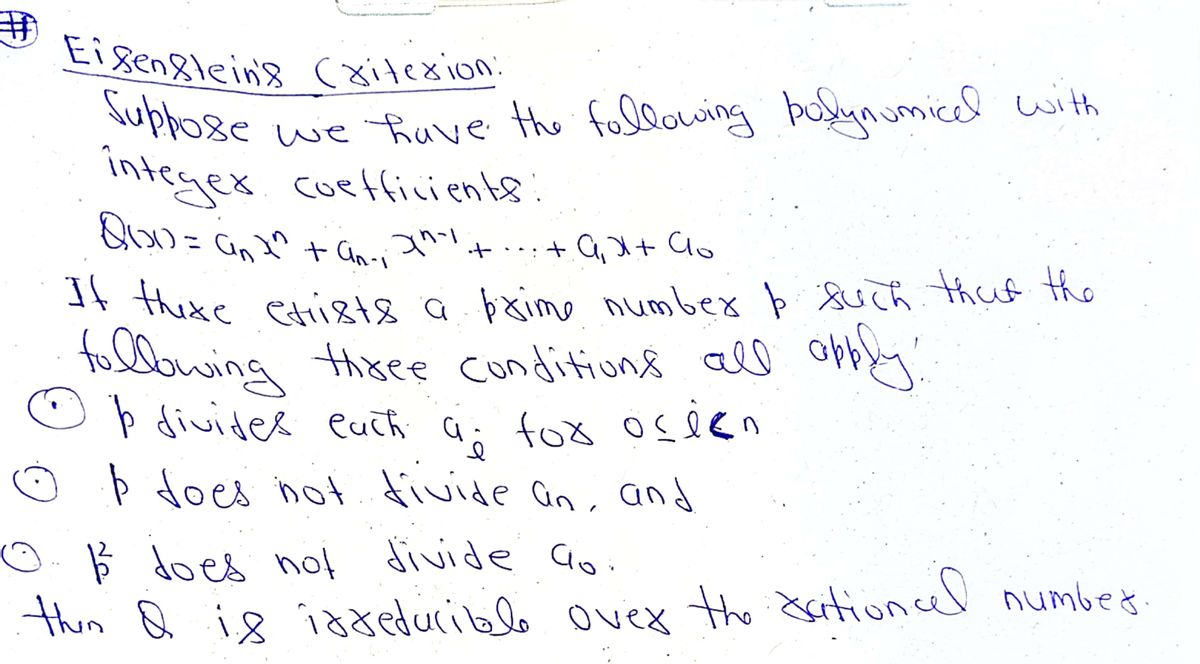 Eisenstein's Criterion:
Suppose we have the following polynomial with
integer coefficients:
Q(x) = aₙxⁿ + aₙ₋₁ xⁿ⁻¹ + ... + a₁x + a₀
If there exists a prime number p such that the
following three conditions all apply:
p divides each aᵢ for 0≤i<n
p does not divide aₙ, and
p² does not divide a₀.
then Q is irreducible over the rational number.